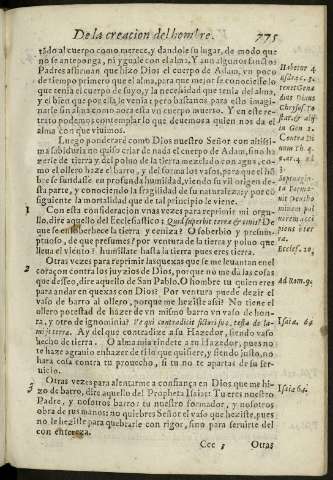 De la creacion del hombre. 775
tãdo al cuerpo como merece, y dandole su lugar, de modo que
no se anteponga, ni yguale con el alma. Y aun algunos santos
Padres afirman que hizo Dios el cuerpo de Adam, vn poco
de tiempo primero que el alma, para que mejor se conociesse lo
que tenia el cuerpo de suyo, y la necesidad que tenia del alma,
y el bien que por ella le venia; pero bastanos para esto imagi-
narle sin alma como aora està vn cuerpo muerto. Y en este re-
trato podemos contemplar lo que deuemos a quien nos da el
alma con que viuimos.
Luego ponderarè como Dios nuestro Señor con altissi-
ma sabiduria no quiso criar de nada el cuerpo de Adam, sino ha
zerle de tierra y del poluo de la tierra mezclado con agua, co-
mo el ollero haze el barro, y del forma los vasos, para que el hõ
bre se fundasse en profunda humildad, viendo su vil origen de-
sta parte, y conociendo la fragilidad de su naturaleza; y por cõ
siguiente la mortalidad que de tal principio le viene.
1 Con esta consideracion vnas vezes para reprimir mi orgu-
llo, dire aquello del Ecclesiastico: Quid superbit terra & cinis? De
que se ensoberbece la tierra y ceniza? O soberbio y presump-
tuoso, de que presumes? por ventura de la tierra y poluo que
lleua el viento? humillate hasta la tierra pues eres tierra.
2 Otras vezes para reprimir las quexas que se me leuantan en el
coraçon contra los juyzios de Dios, porque no me da las cosas
que desseo, dire aquello de San Pablo. O hombre tu quien eres
para andar en quexas con Dios? Por ventura puede dezir el
vaso de barro al ollero, porque me heziste assi? No tiene el
ollero potestad de hazer de vn mismo barro vn vaso de hon-
ra, y otro de ignominia? Ve qui contradicit fictori suo, testa de sa-
mijs terræ. Ay del que contradize a su Hazedor, siendo vaso
hecho de tierra. O alma mia rindete a tu Hazedor, pues no
te haze agrauio en hazer de ti lo que quisiere, y siendo justo, no
hara cosa contra tu prouecho, si tu no te apartas de su ser-
uicio.
3 Otras vezes para alentarme a confiança en Dios, que me hi-
zo de barro, dire aquello del Propheta Isaias: Tu eres nuestro
Padre, y nosotros barro: tu nuestro formador, y nosotros
obra de tus manos: no quiebres Señor el vaso que heziste, pues
no le heziste para quebrarle con rigor, sino para seruirte del
con entereza.
Ccc 3 Otras
Eccles. 10.
ad Rom. 9.
Isaiæ. 64
Isaiæ 64.